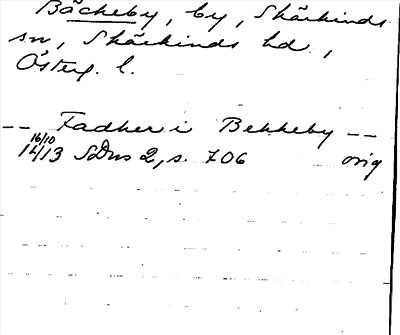 Bäckeby, by, Skärkinds
sn, Skärkinds hd,
Österg. l.
-- Fadher i Bekkeby --
16/10
1413 SDns 2, s. 706 orig